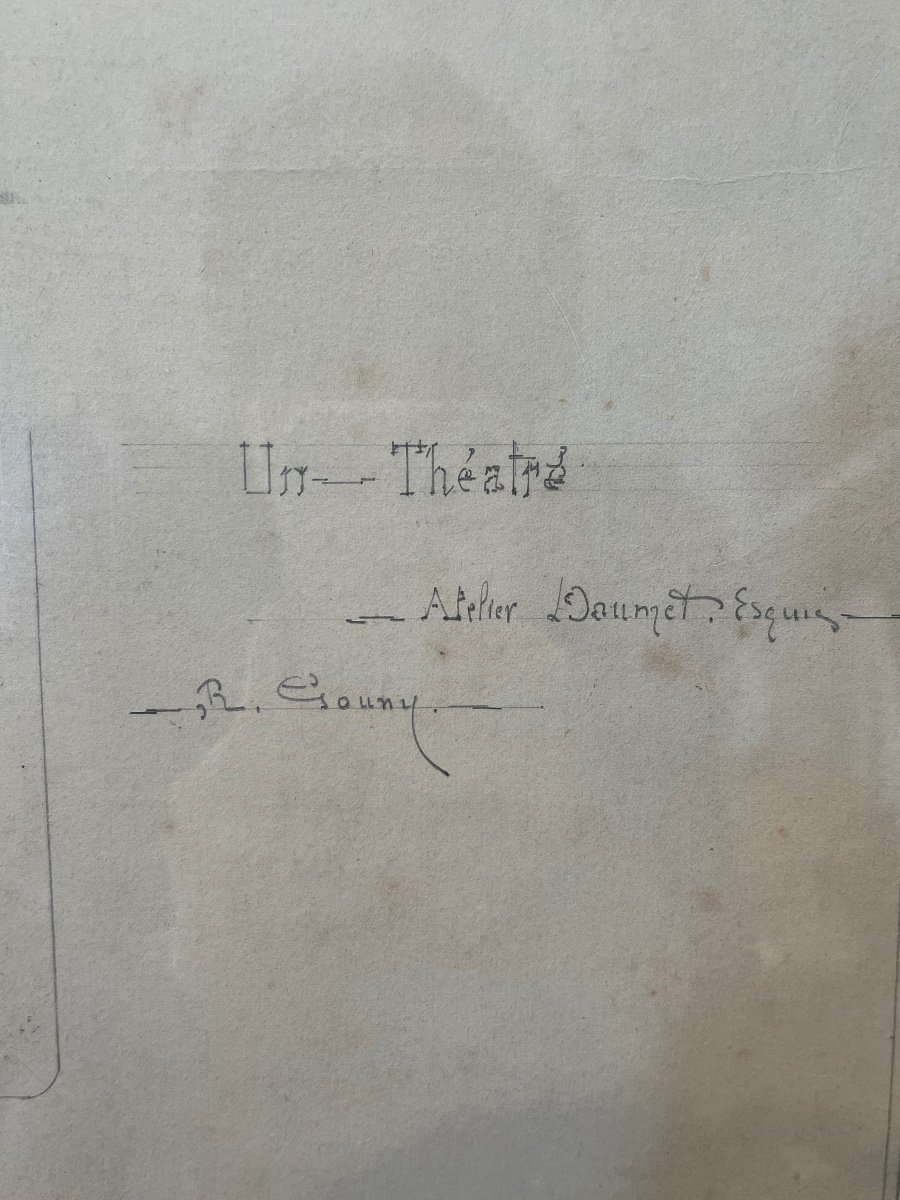 Un — Théatre
— Atelier Daumet. Esquis —
— R. Gouny. —